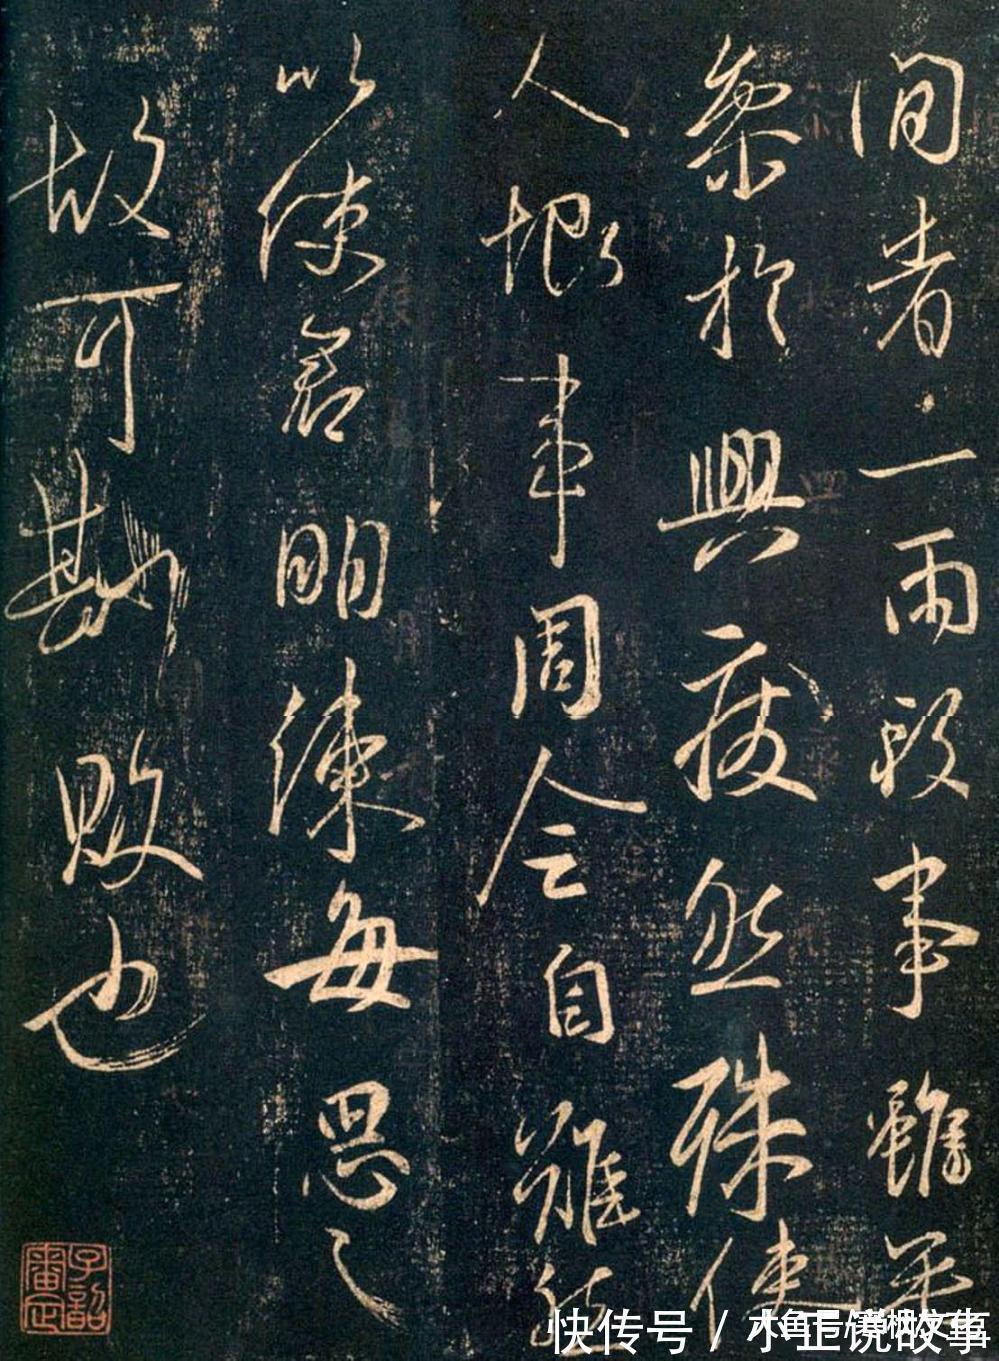 間者一兩段事雖不
參於興廢然殊使
人事周自難
以使君明練每思之
故可敗也
快传号 / 小正说故事